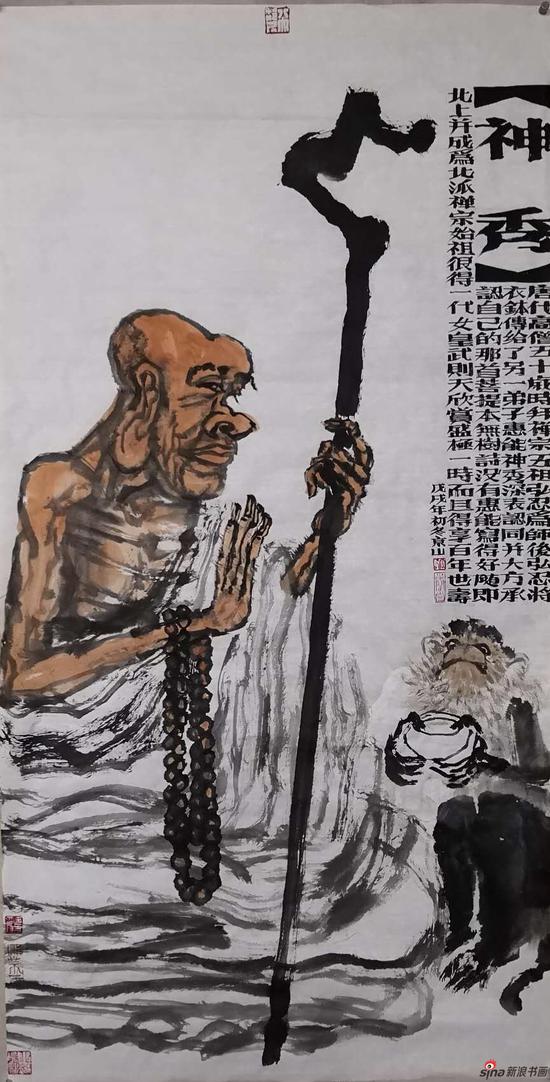 【神秀】
唐代高僧五十歲時拜禅宗五祖弘忍爲師後弘忍將
衣鉢傳給了另一弟子惠能神秀深表認同并大方承
認自己的那首菩提本無樹詩没有惠能寫得好随即
北上并成爲北派禅宗始祖很得一代女皇武則天欣賞盛極一時而且得享百年世壽
戊戌年初冬京山
sina新浪书画